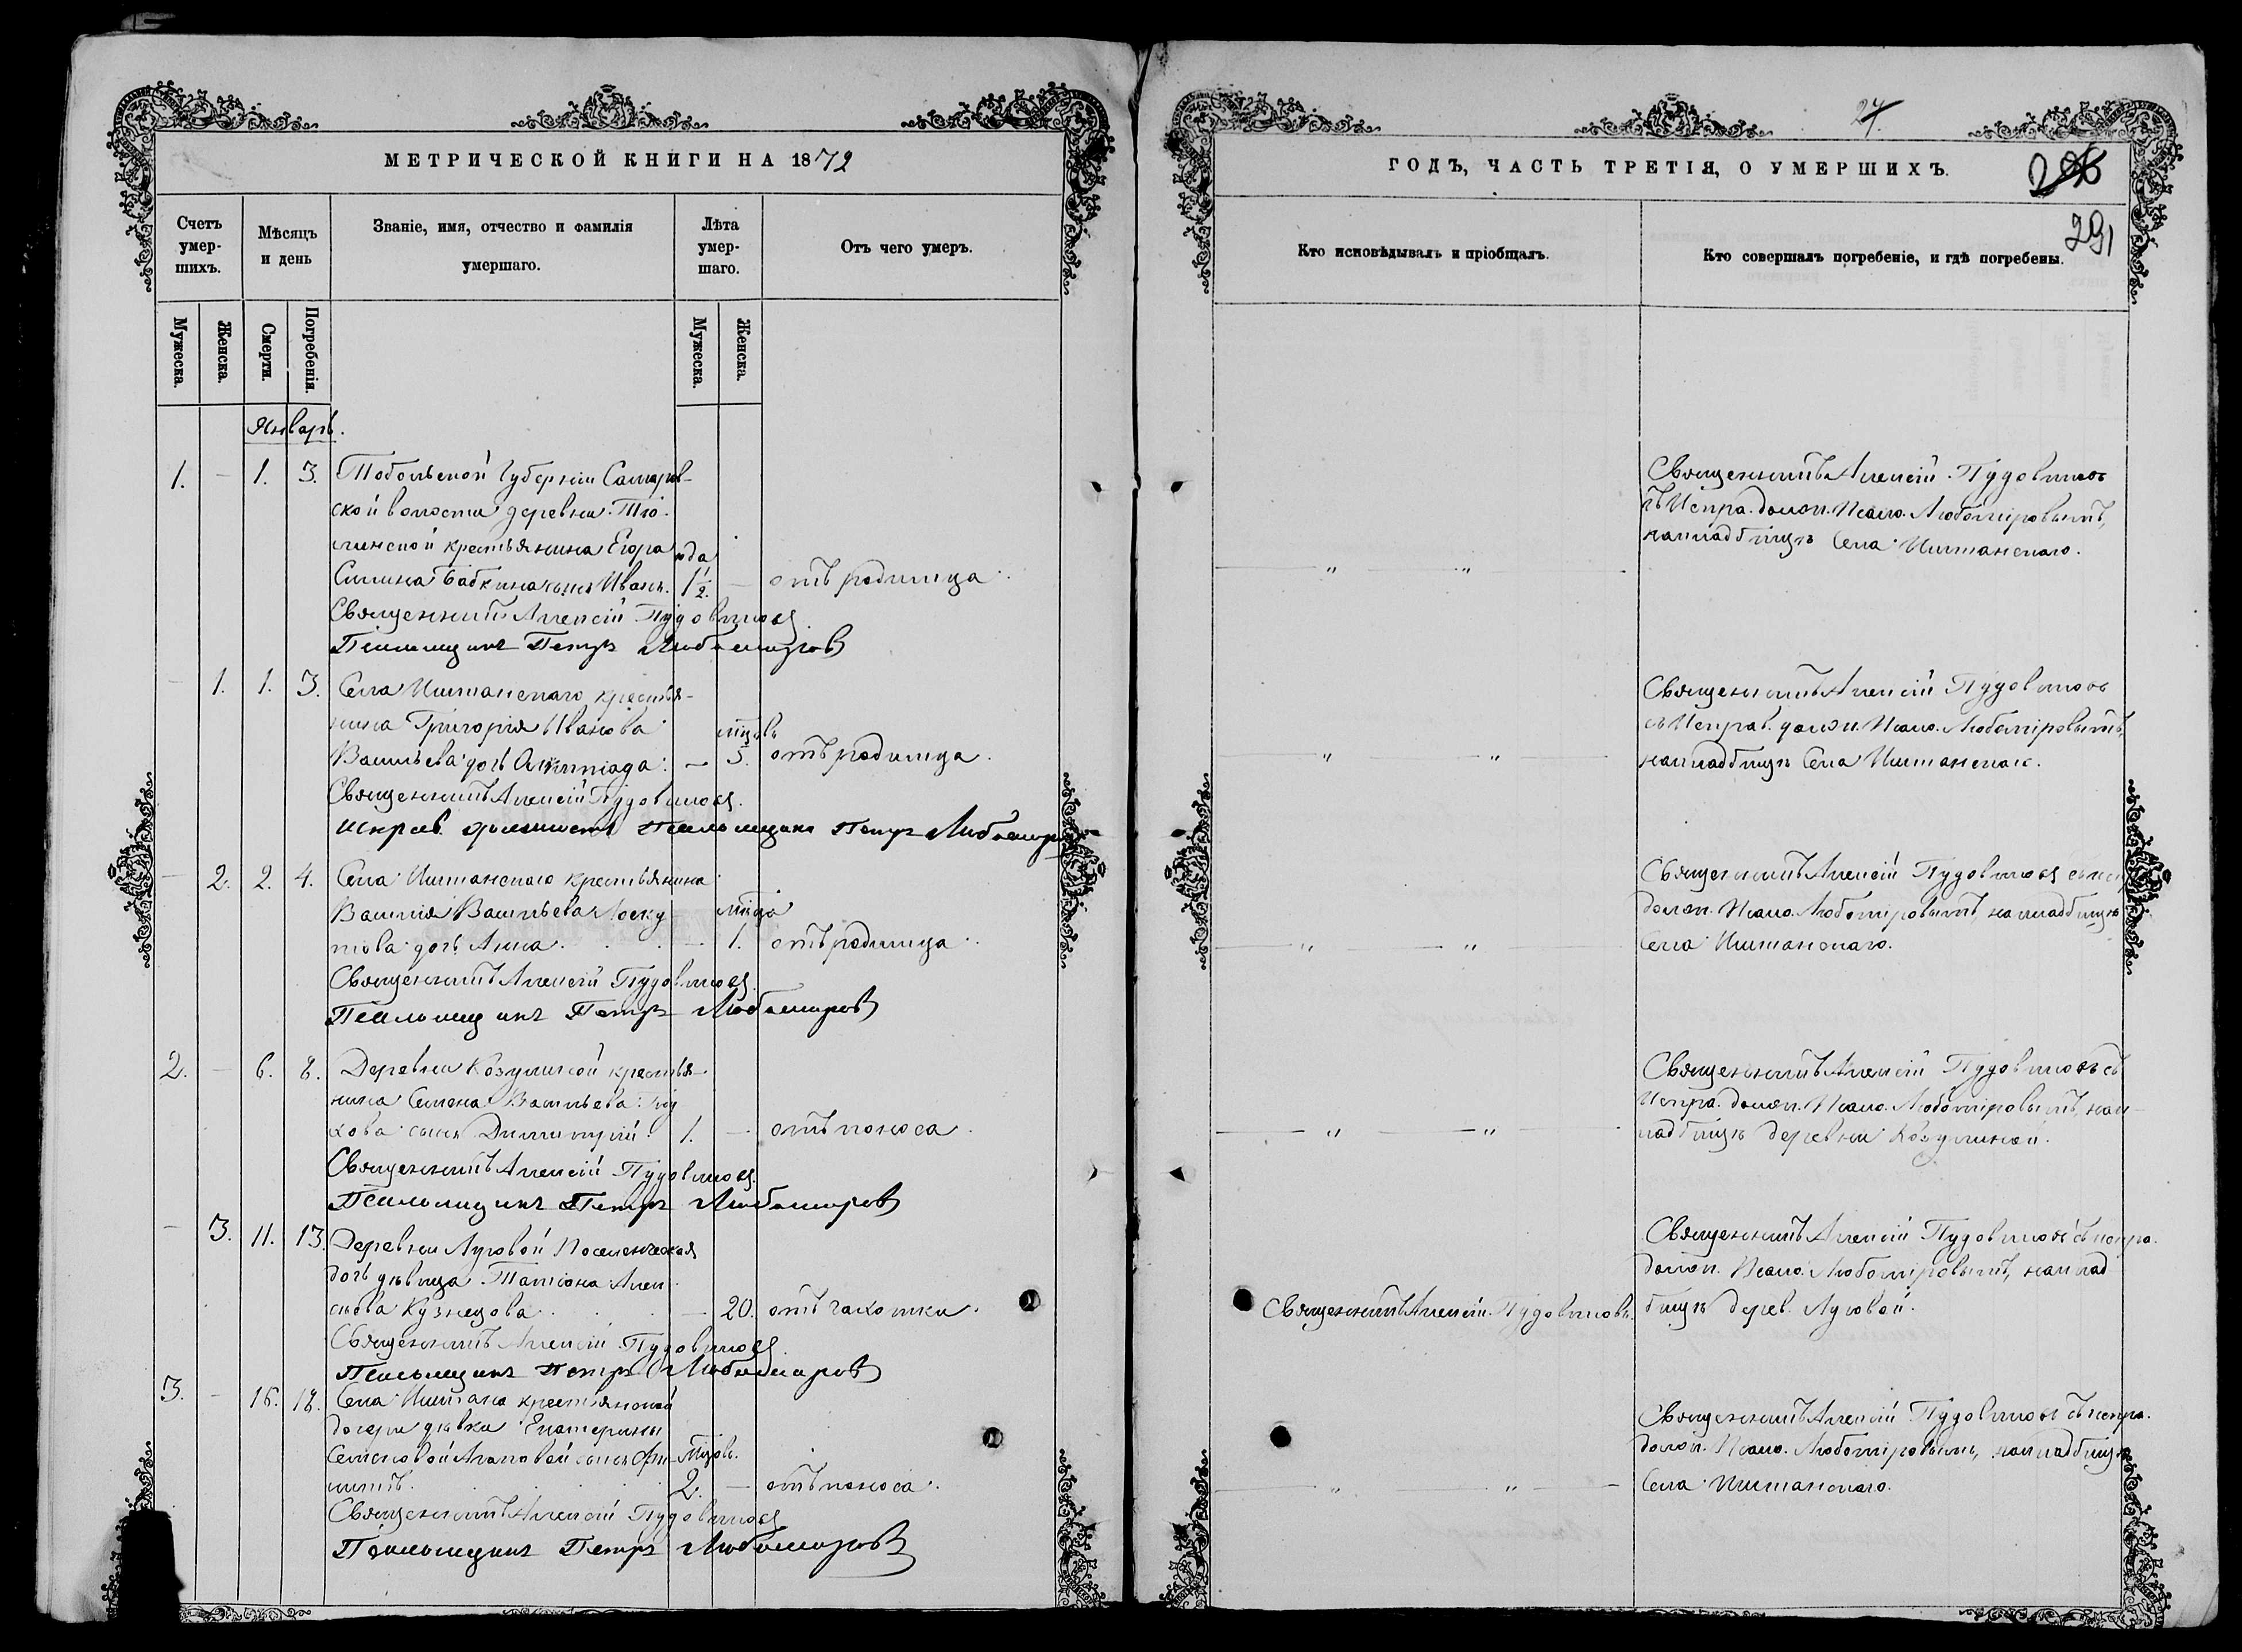 МЕТРИЧЕСКОЙ КНИГИ НА 1872
Счетъ умер-шихъ.
Мѣсяцъ и день
Званіе, имя, отчество и фамилія умершаго.
Лѣта умер-шаго.
Отъ чего умеръ.
Мужеска.
Женска.
Смерти.
Погребенія.
Мужеска.
Женска.
Январь.
1. – 1. 3. Тобольской Губерніи Самаров-
ской волости деревни
крестьянина Егора года
Бабкина сынъ Иванъ. 1 1/2. – отъ родимца.
Священникъ Алексій Пудовиковъ
Псаломщикъ Петръ Любомировъ
– 1. 1. 3. Села Иштанскаго крестья-
нина Григорія Иванова мцовъ
Васильева дочь – 5. отъ родимца.
Священникъ Алексій Пудовиковъ.
Исправ. должность Псаломщика Петръ Любомиров
– 2. 2. 4. Села Иштанскаго крестьянина
Василія Васильева Лоску мцъ
това дочь Анна. – 1. отъ родимца.
Священникъ Алексій Пудовиковъ.
Псаломщикъ Петръ Любомировъ
2. – 6. 8. Деревни Козулиной крестья-
нина Семена Васильева
сынъ Димитрій. 1. – отъ поноса.
Священникъ Алексій Пудовиковъ.
Псаломщикъ Петръ Любомировъ
– 3. 11. 13. Деревни Луговой Поселенческая
дочь дѣвица Татіана Алек
сѣева Кузнецова. – 20. отъ чахотки.
Священникъ Алексій Пудовиковъ
Псаломщикъ Петръ Любомировъ
3. – 16. 18. Села Иштана крестьянской
дочери дѣвки Екатерины
Семеновой Агаповой сынъ мцовъ.
2. – отъ поноса.
Священникъ Алексій Пудовиковъ
Псаломщикъ Петръ Любомировъ
ГОДЪ, ЧАСТЬ ТРЕТІЯ, О УМЕРШИХЪ.
291
Кто исповѣдывалъ и пріобщалъ.
Кто совершалъ погребеніе, и гдѣ погребены.
Священникъ Алексій Пудовиковъ
съ Испра. долж. Псало. Любомировымъ,
на кладбищѣ Села Иштанскаго.
Священникъ Алексій Пудовиковъ
съ Исправ. долж. Псало. Любомировымъ,
на кладбищѣ Села Иштанскаго.
Священникъ Алексій Пудовиковъ съ исп
долж. Псало. Любомировымъ, на кладбищѣ
Села Иштанскаго.
Священникъ Алексій Пудовиковъ съ
Испра. долж. Псало. Любомировымъ, на к-
ладбищѣ деревни Козулиной.
Священникъ Алексій Пудовиковъ съ испра.
долж. Псало. Любомировымъ, на клад
Священникъ Алексій Пудовиковъ. бищѣ дерев. Луговой.
Священникъ Алексій Пудовиковъ съ испра.
долж. Псало. Любомировымъ, на кладбищѣ
Села Иштанскаго.